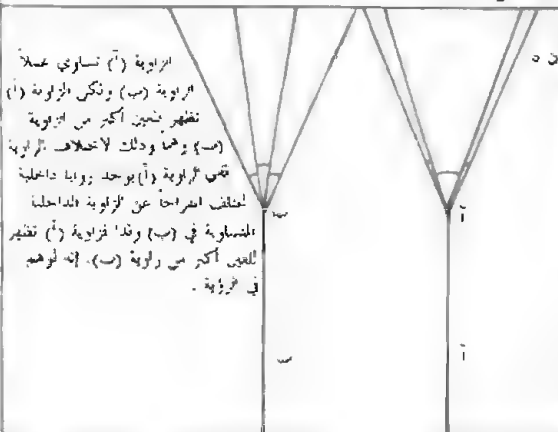 الزاوية (آ) تساوي عملاً
الزاوية (ب) ولكن الزاوية (آ)
تظهر للعين أكبر من الزاوية
(ب) وهماً وذلك لاختلاف الزاوية
ففي الزاوية (آ) يوجد زوايا داخلية
تختلف انفراجاً عن الزاوية الداخلية
المتساوية في (ب) ولذا فزاوية (آ) تظهر
للعين أكبر من زاوية (ب). إنه الوهم
في الرؤية.
ب
آ
ب
آ